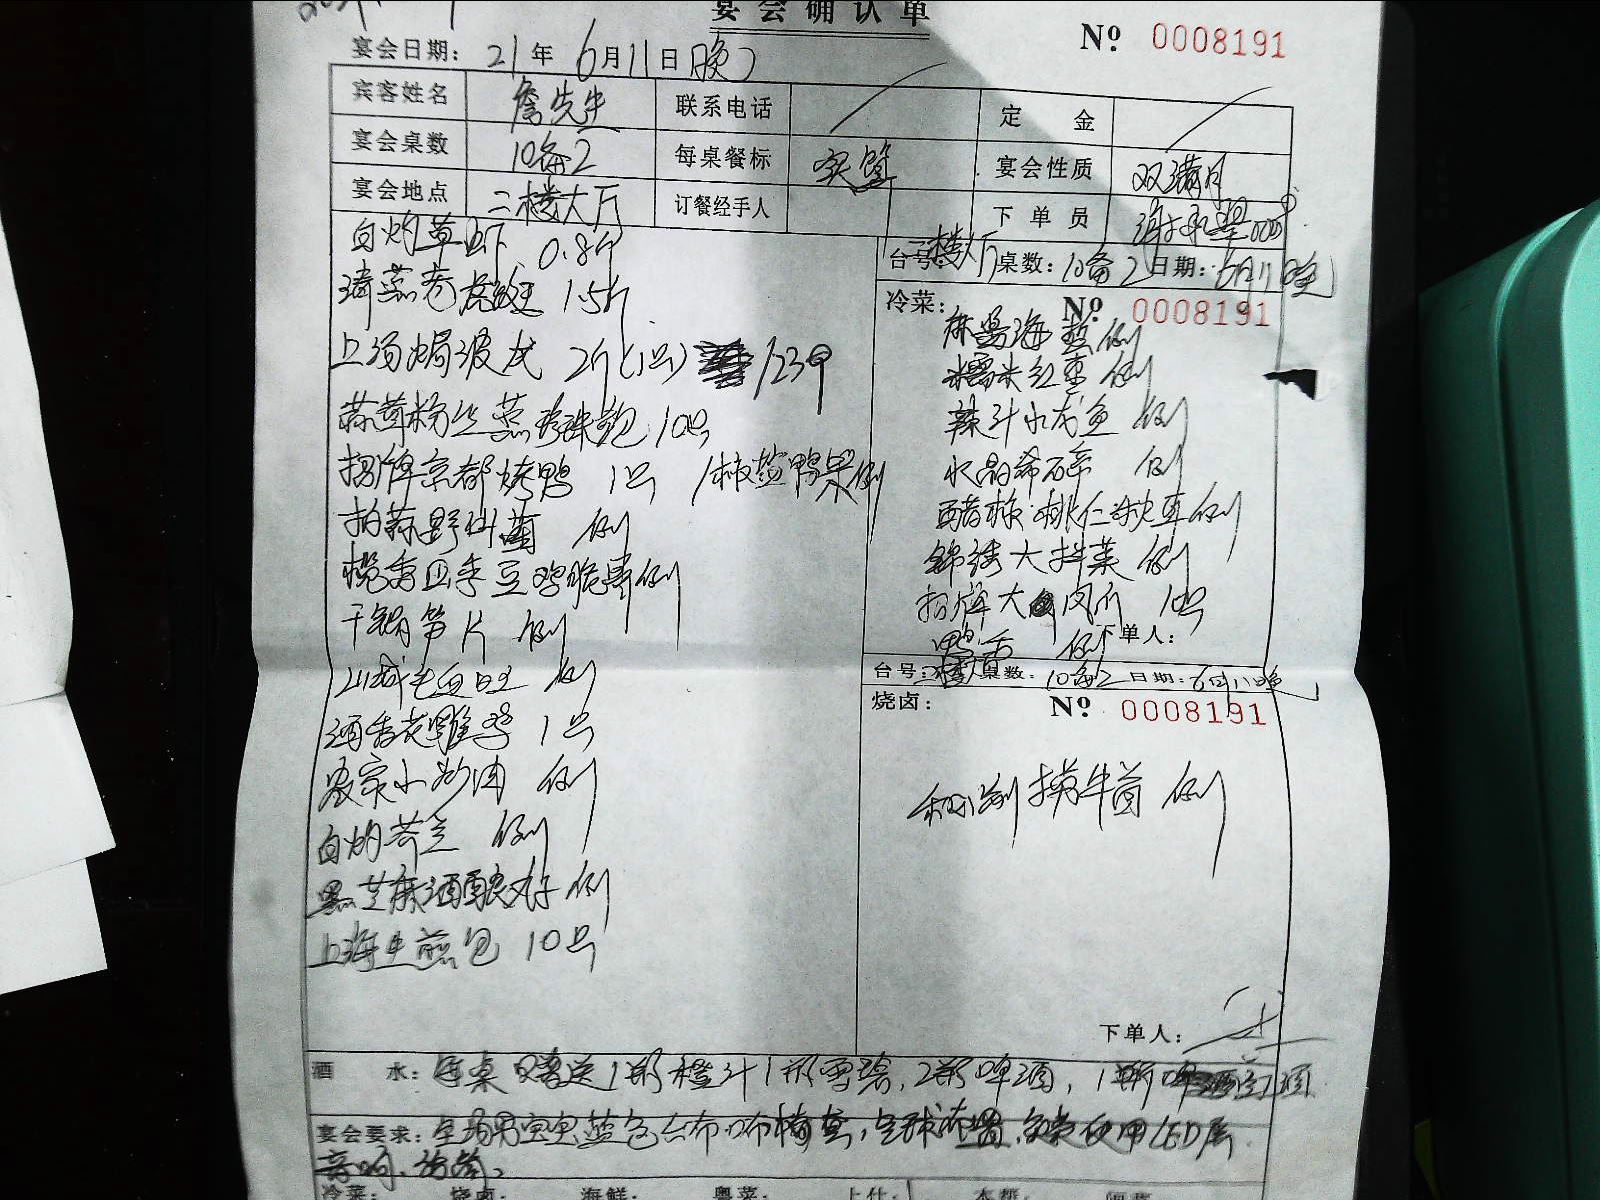 宴会确认单
No 0008191
宴会日期: 21年 6月11日(晚)
宾客姓名 詹先生 联系电话 定金
宴会桌数 10备2 每桌餐标 宴会性质 双满月
宴会地点 二楼大厅 订餐经手人 下单员
白灼草虾 0.8斤
清蒸 1.5斤
上汤焗波龙 2斤(1只) /239
蒜茸粉丝蒸珍珠鲍 10只
招牌京都烤鸭 1只 /椒盐鸭架例
拍蒜野山菌 例
榄香四季豆鸡脆骨例
干锅笋片 例
山城毛血旺 例
酒香花雕鸡 1只
农家小炒肉 例
白灼芥兰 例
黑芝麻酒酿丸子 例
上海生煎包 10只
台号: 二楼大厅 桌数: 10备2 日期: 6月11日晚
冷菜: No 0008191
麻酱海蜇 例
糯米红枣 例
辣汁小龙鱼 例
水晶 例
醋椒桃仁秋耳例
锦绣大拌菜 例
招牌大肉 10只
鸭舌 例
下单人:
台号: 二楼 桌数: 10备2 日期: 6月11晚
烧卤: No 0008191
捞牛 例
下单人:
酒水: 每桌赠送1瓶橙汁1瓶雪碧,2瓶啤酒,1瓶红酒
宴会要求: 全场男宝宝蓝色台布口布椅套, 使用LED屏
音响、话筒。
冷菜: 烧卤: 海鲜: 粤菜: 上什: 本帮: